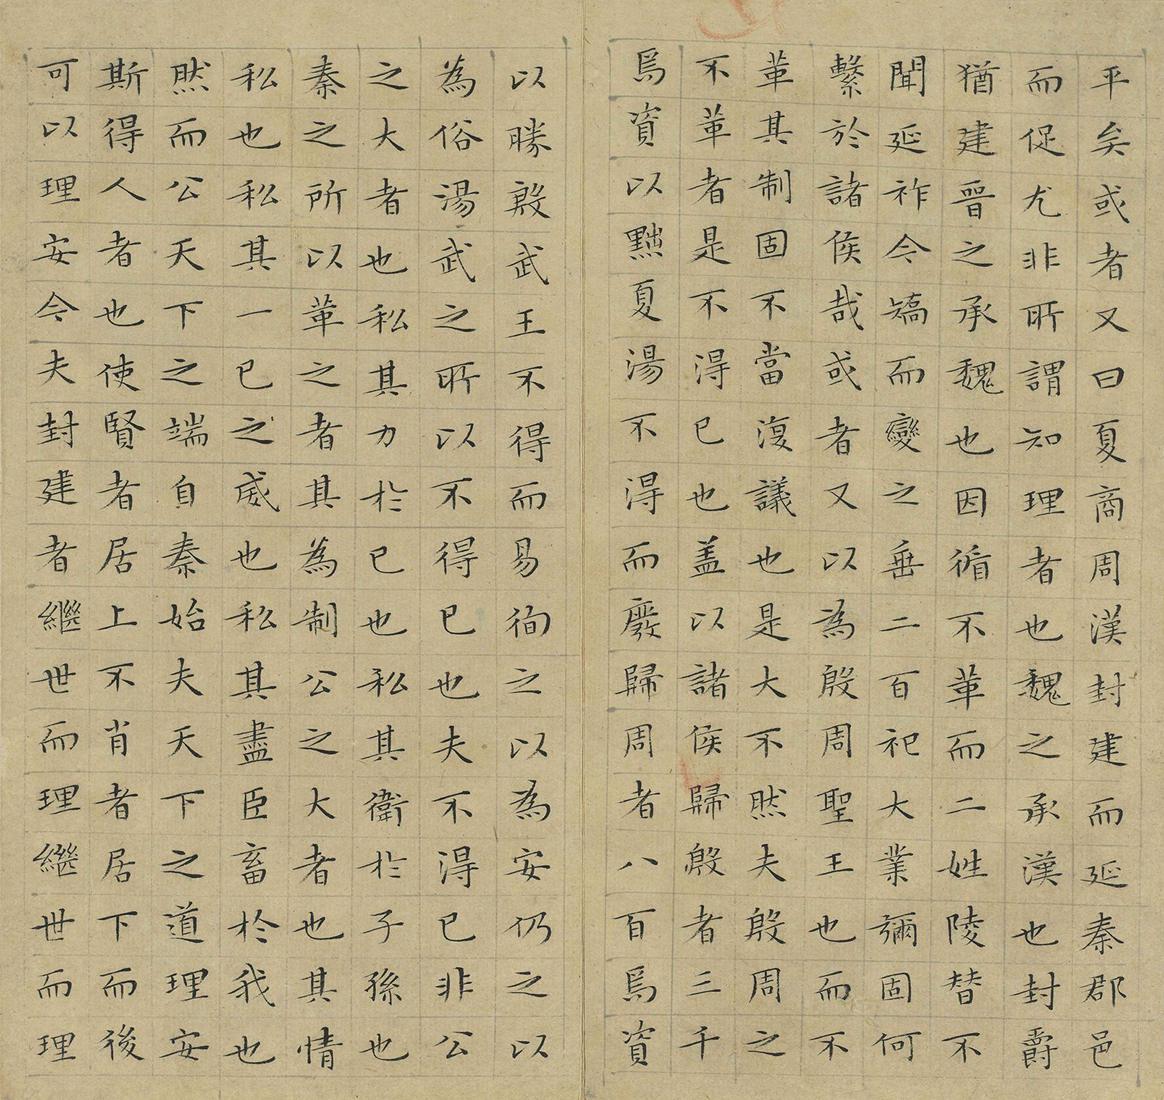 平矣或者又曰夏商周漢封建而延秦郡邑
而促尤非所謂知理者也魏之承漢也封爵
猶建晉之承魏也因循不革而二姓陵替不
聞延祚今矯而變之垂二百祀大業彌固何
繫於諸侯哉或者又以為殷周聖王也而不
革其制固不當復議也是大不然夫殷周之
不革者是不得已也盖以諸侯歸殷者三千
焉資以黜夏湯不得而廢歸周者八百焉資
以勝殷武王不得而易徇之以為安仍之以
為俗湯武之所以不得已也夫不得已非公
之大者也私其力於已也私其衛於子孫也
秦之所以革之者其為制公之大者也其情
私也私其一已之威也私其盡臣畜於我也
然而公天下之端自秦始夫天下之道理安
斯得人者也使賢者居上不肖者居下而後
可以理安今夫封建者繼世而理繼世而理